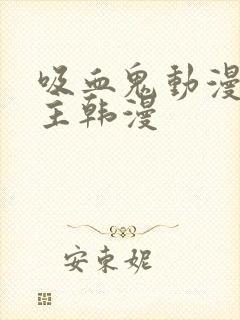 吸血鬼動漫
主韩漫
安東妮